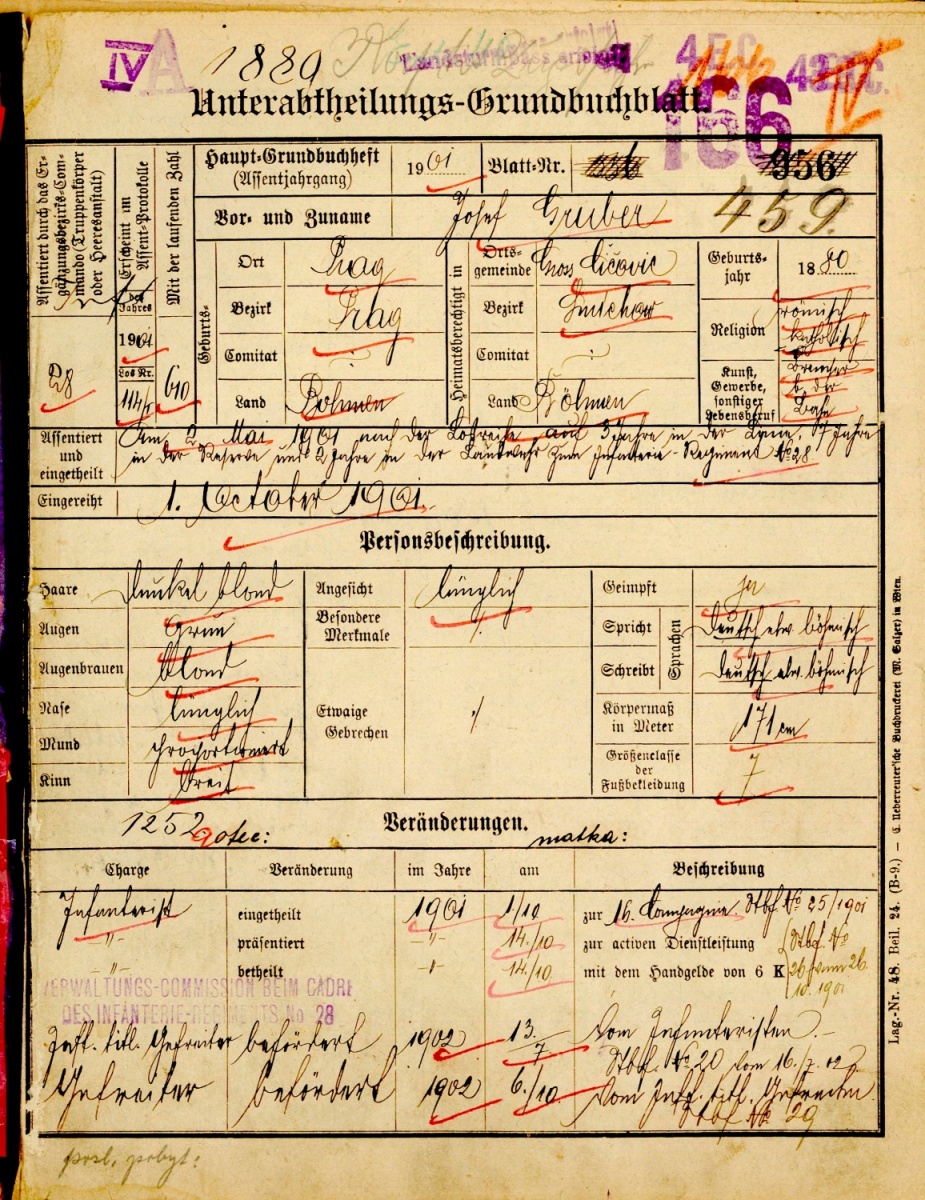 IV A
1889
4 E.C.
166
IV
Unterabtheilungs-Grundbuchblatt.
Assentiert durch das Er-
gänzungsbezirks-Com-
mando (Truppenkörper
oder Heeresanstalt)
28
Erscheint im
Assent-Protokolle
des
Jahres
1901
Los Nr.
114/I
Mit der laufenden Zahl
610
Haupt-Grundbuchheft
(Assentjahrgang)
1901
Blatt-Nr.
956
459.
Vor- und Zuname
Josef Gruber
Geburts-
Ort Prag
Bezirk Prag
Comitat
Land Böhmen
Heimatsberechtigt in
Orts-
gemeinde Gross Čičovic
Bezirk Smichow
Comitat
Land Böhmen
Geburts-
jahr 1880
Religion römisch
katholisch
Kunst,
Gewerbe,
sonstiger
Lebensberuf
b. der
Bahn
Assentiert
und
eingetheilt
Am 2. Mai 1901 nach der Losreihe auf 3 Jahre in der Linie, 7 Jahre
in der Reserve und 2 Jahre in der Landwehr zum Infanterie-Regiment No 28
Eingereiht 1. October 1901.
Personsbeschreibung.
Haare dunkel blond
Augen grün
Augenbrauen blond
Nase länglich
Mund proportioniert
Kinn breit
Angesicht länglich
Besondere
Merkmale
Etwaige
Gebrechen
Geimpft ja
Sprachen
Spricht deutsch etw. böhmisch
Schreibt deutsch etw. böhmisch
Körpermaß
in Meter 171 cm
Größenclasse
der
Fußbekleidung 7
1252 otec:
Veränderungen.
matka:
Charge Veränderung im Jahre am Beschreibung
Infanterist eingetheilt 1901 1/10 zur 16. Compagnie. Stbf. No 25/1901
-"- präsentiert -"- 14./10 zur activen Dienstleistung Stbf. No
-"- betheilt -"- 14./10 mit dem Handgelde von 6 K 26 vom 26.
10. 1901
VERWALTUNGS-COMMISSION BEIM CADRE
DES INFANTERIE-REGIMENTS No 28
Inft. titl. Gefreiter befördert 1902 13./7. Vom Infanteristen.
Stbf. No 20 vom 16./7. 02
Gefreiter befördert 1902 6./10. Vom Inft. titl. Gefreiten.
Stbf No 29
posl. pobyt:
Lag.-Nr. 48. Beil. 24. (B-9.) — C. Ueberreuter'sche Buchdruckerei (M. Salzer) in Wien.